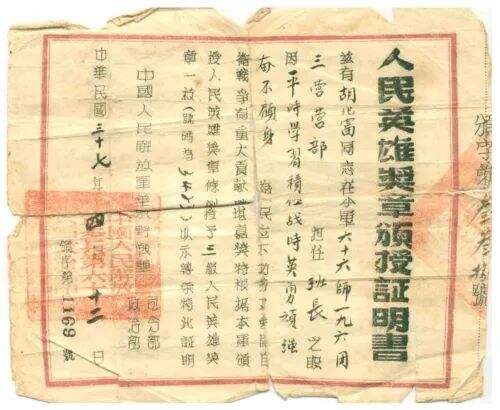 頒字第叁叁 號
人民英雄奬章頒授証明書
茲有胡兆富同志在本軍六十六師一九六団
三营营部 担任 班長 之職
因平時學習積極战時英勇頑強
奋不顾身 為民立
衛戰爭有重大貢獻堪嘉獎特根據本軍頒
授人民英雄奬章條例授予三級人民英雄奬
章一枚(號碼為 )以示榮譽特此証明
中國人民解放軍華東野戰軍 司令部
政治部
中華民國三十七年四月十二日
字第1169號